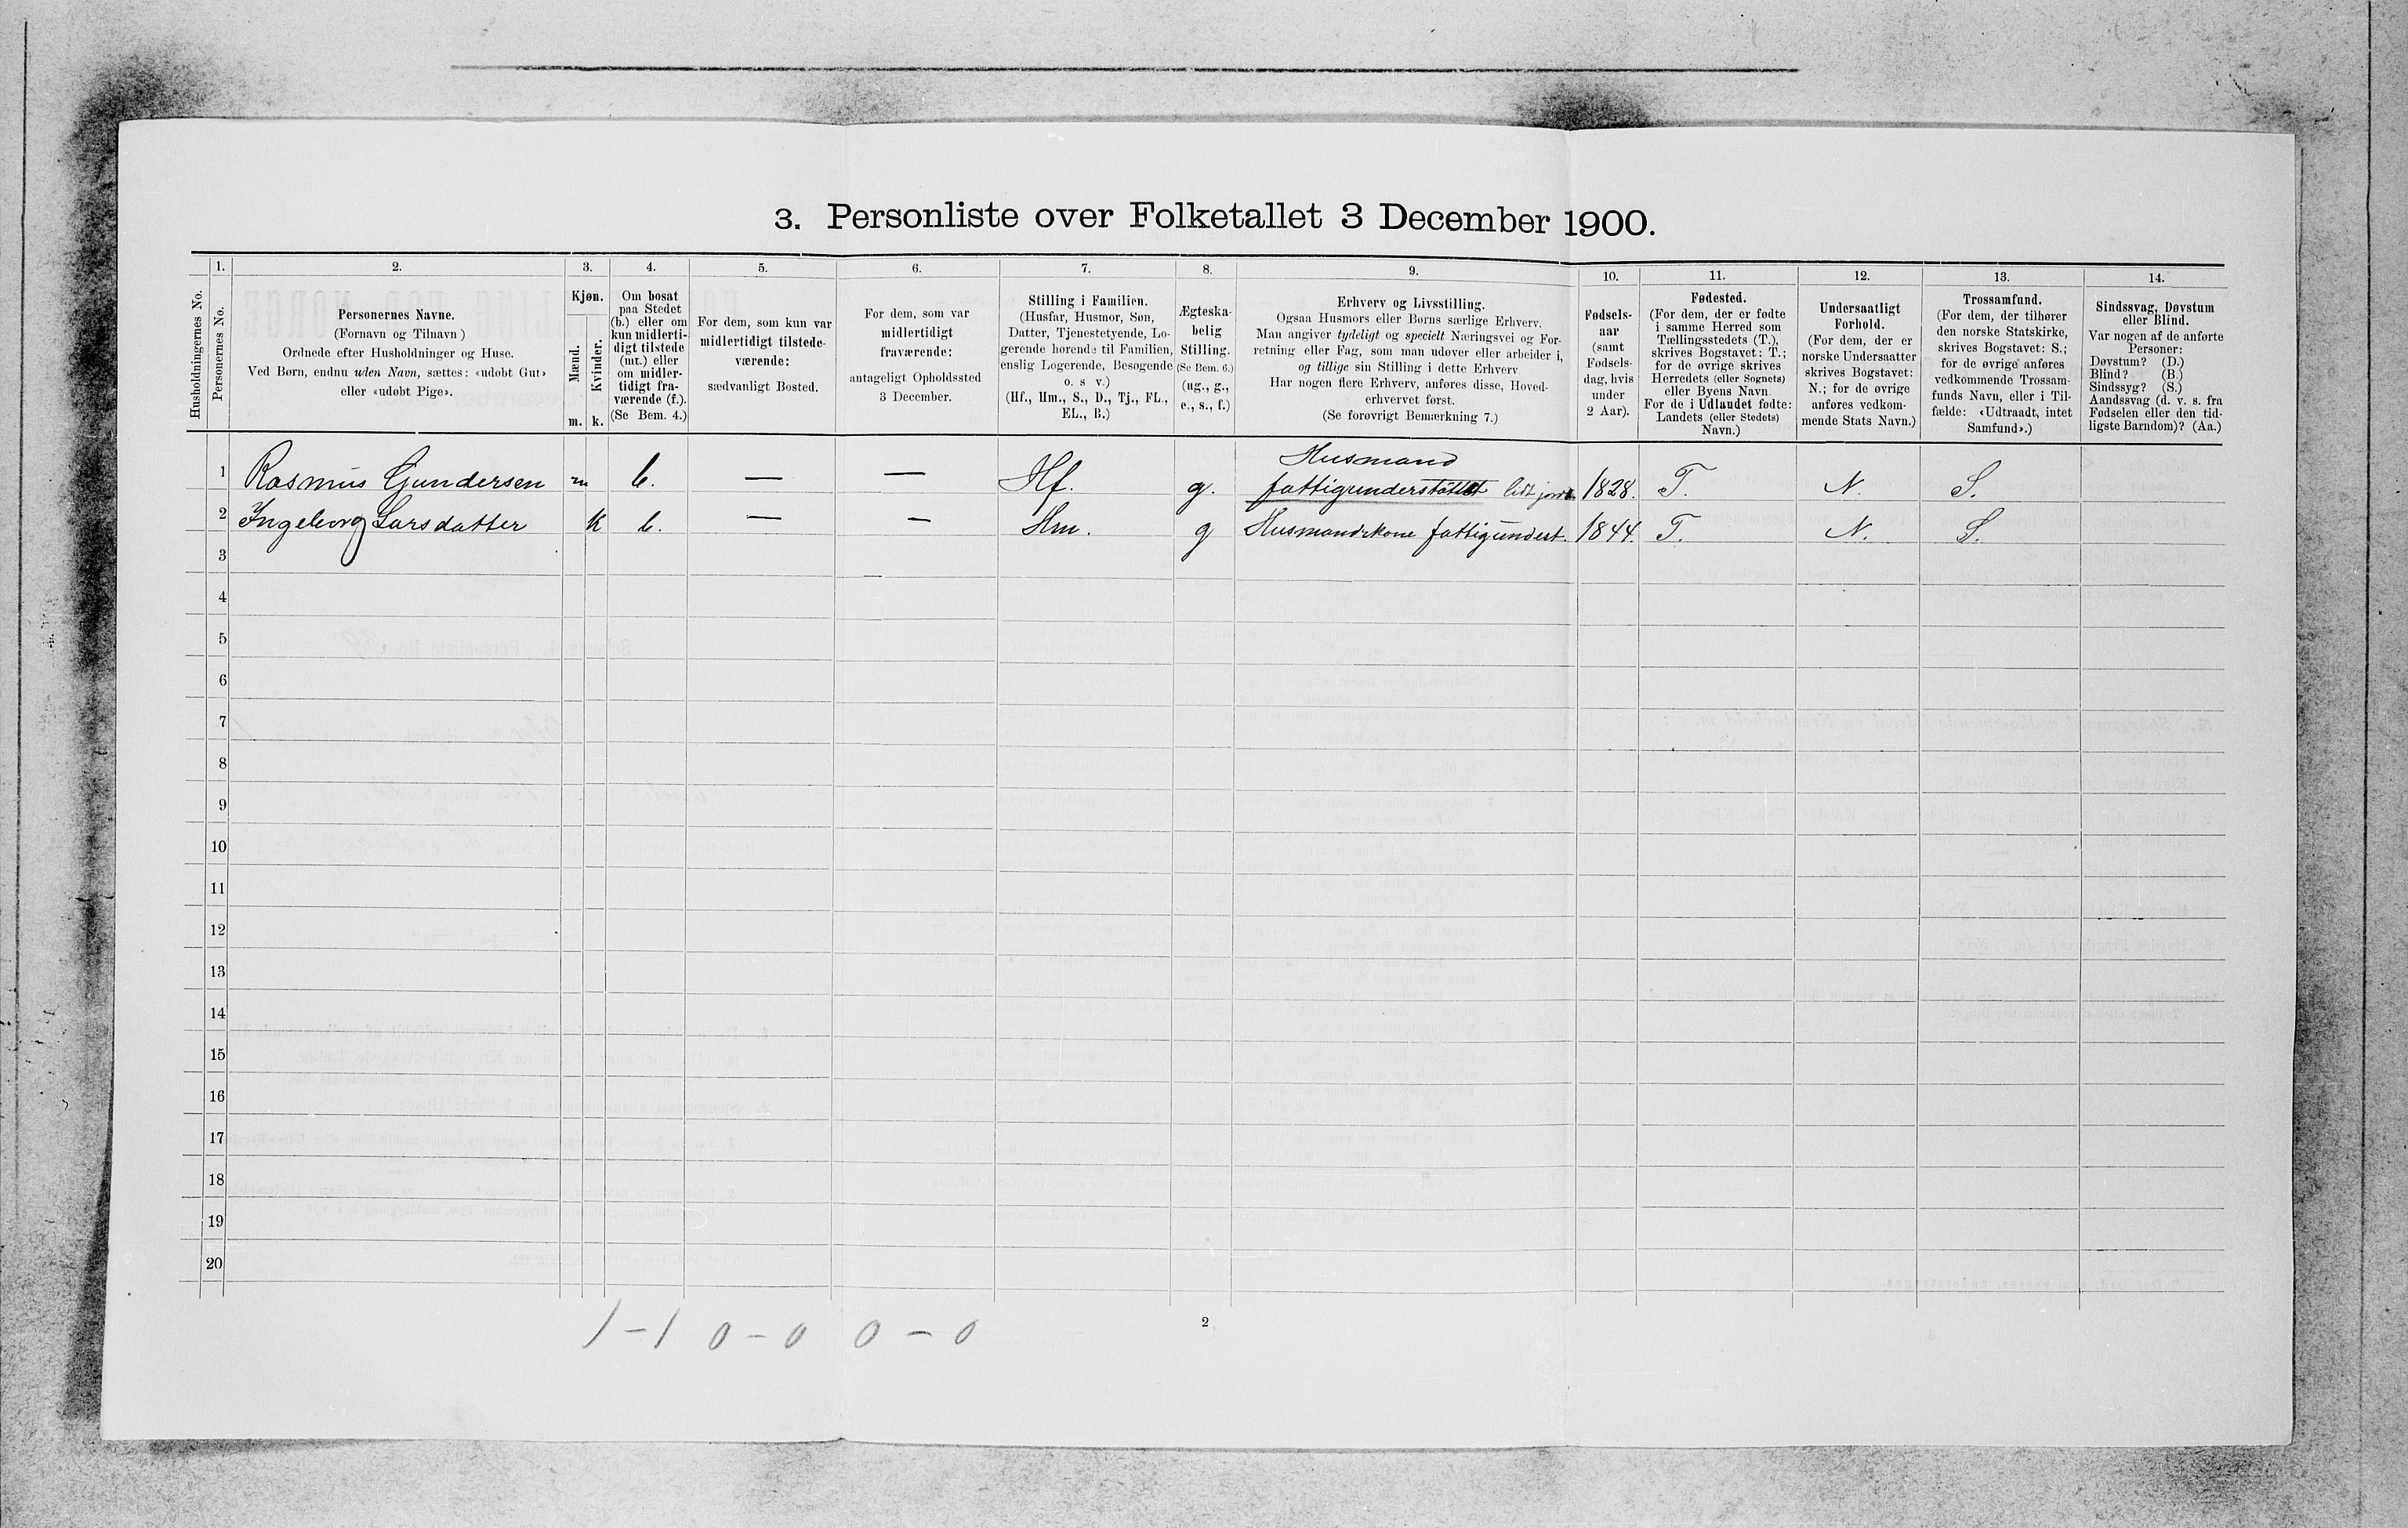 3. Personliste over Folketallet 3 December 1900.
1. 2. 3. 4. 5. 6. 7. 8. 9. 10. 11. 12. 13. 14.
Husholdningernes No.
Personernes No.
Personernes Navne.
(Fornavn og Tilnavn)
Ordnede efter Husholdninger og Huse.
Ved Børn, endnu uden Navn, sættes: «udøbt Gut»
eller «udøbt Pige».
Kjøn.
Mænd.
Kvinder.
m. k.
Om bosat
paa Stedet
(b.) eller om
kun midlerti-
digt tilstede
(mt.) eller
om midler-
tidigt fra-
værende (f.).
(Se Bem. 4.)
For dem, som kun var
midlertidigt tilstede-
værende:
sædvanligt Bosted.
For dem, som var
midlertidigt
fraværende:
antageligt Opholdssted
3 December.
Stilling i Familien.
(Husfar, Husmor, Søn,
Datter, Tjenestetyende, Lo-
gerende hørende til Familien,
enslig Logerende, Besøgende
o. s v.)
(Hf., Hm., S., D., Tj., FL.,
EL., B.)
Ægteska-
belig
Stilling.
(Se Bem. 6.)
(ug., g.,
e., s., f.)
Erhverv og Livsstilling.
Ogsaa Husmors eller Børns særlige Erhverv.
Man angiver tydeligt og specielt Næringsvei og For-
retning eller Fag, som man udøver eller arbeider i,
og tillige sin Stilling i dette Erhverv
Har nogen flere Erhverv, anføres disse, Hoved-
erhvervet først.
(Se forøvrigt Bemærkning 7.)
Fødsels-
aar
(samt
Fødsels-
dag, hvis
under
2 Aar).
Fødested.
(For dem, der er fødte
i samme Herred som
Tællingsstedets (T.),
skrives Bogstavet: T.;
for de øvrige skrives
Herredets (eller Sognets)
eller Byens Navn
For de i Udlandet fødte:
Landets (eller Stedets)
Navn.)
Undersaatligt
Forhold.
(For dem, der er
norske Undersaatter
skrives Bogstavet:
N.; for de øvrige
anføres vedkom-
mende Stats Navn.)
Trossamfund.
(For dem, der tilhører
den norske Statskirke,
skrives Bogstavet: S.;
for de øvrige anføres
vedkommende Trossam-
funds Navn, eller i Til-
fælde: «Udtraadt, intet
Samfund».)
Sindssvag, Døvstum
eller Blind.
Var nogen af de anførte
Personer:
Døvstum? (D.)
Blind? (B.)
Sindssyg? (S.)
Aandssvag (d. v. s. fra
Fødselen eller den tid-
ligste Barndom)? (Aa.)
Husmand
1 Rasmus Gundersen m b. — — Hf. g. fattigunderstöttet lidt jord. 1828. T. N. S.
2 Ingeborg Larsdatter k b. — — Hm. g Husmandskone fattigunderst. 1844. T. N. S.
3
4
5
6
7
8
9
10
11
12
13
14
15
16
17
18
19
20
1 – 1 0 – 0 0 – 0
2